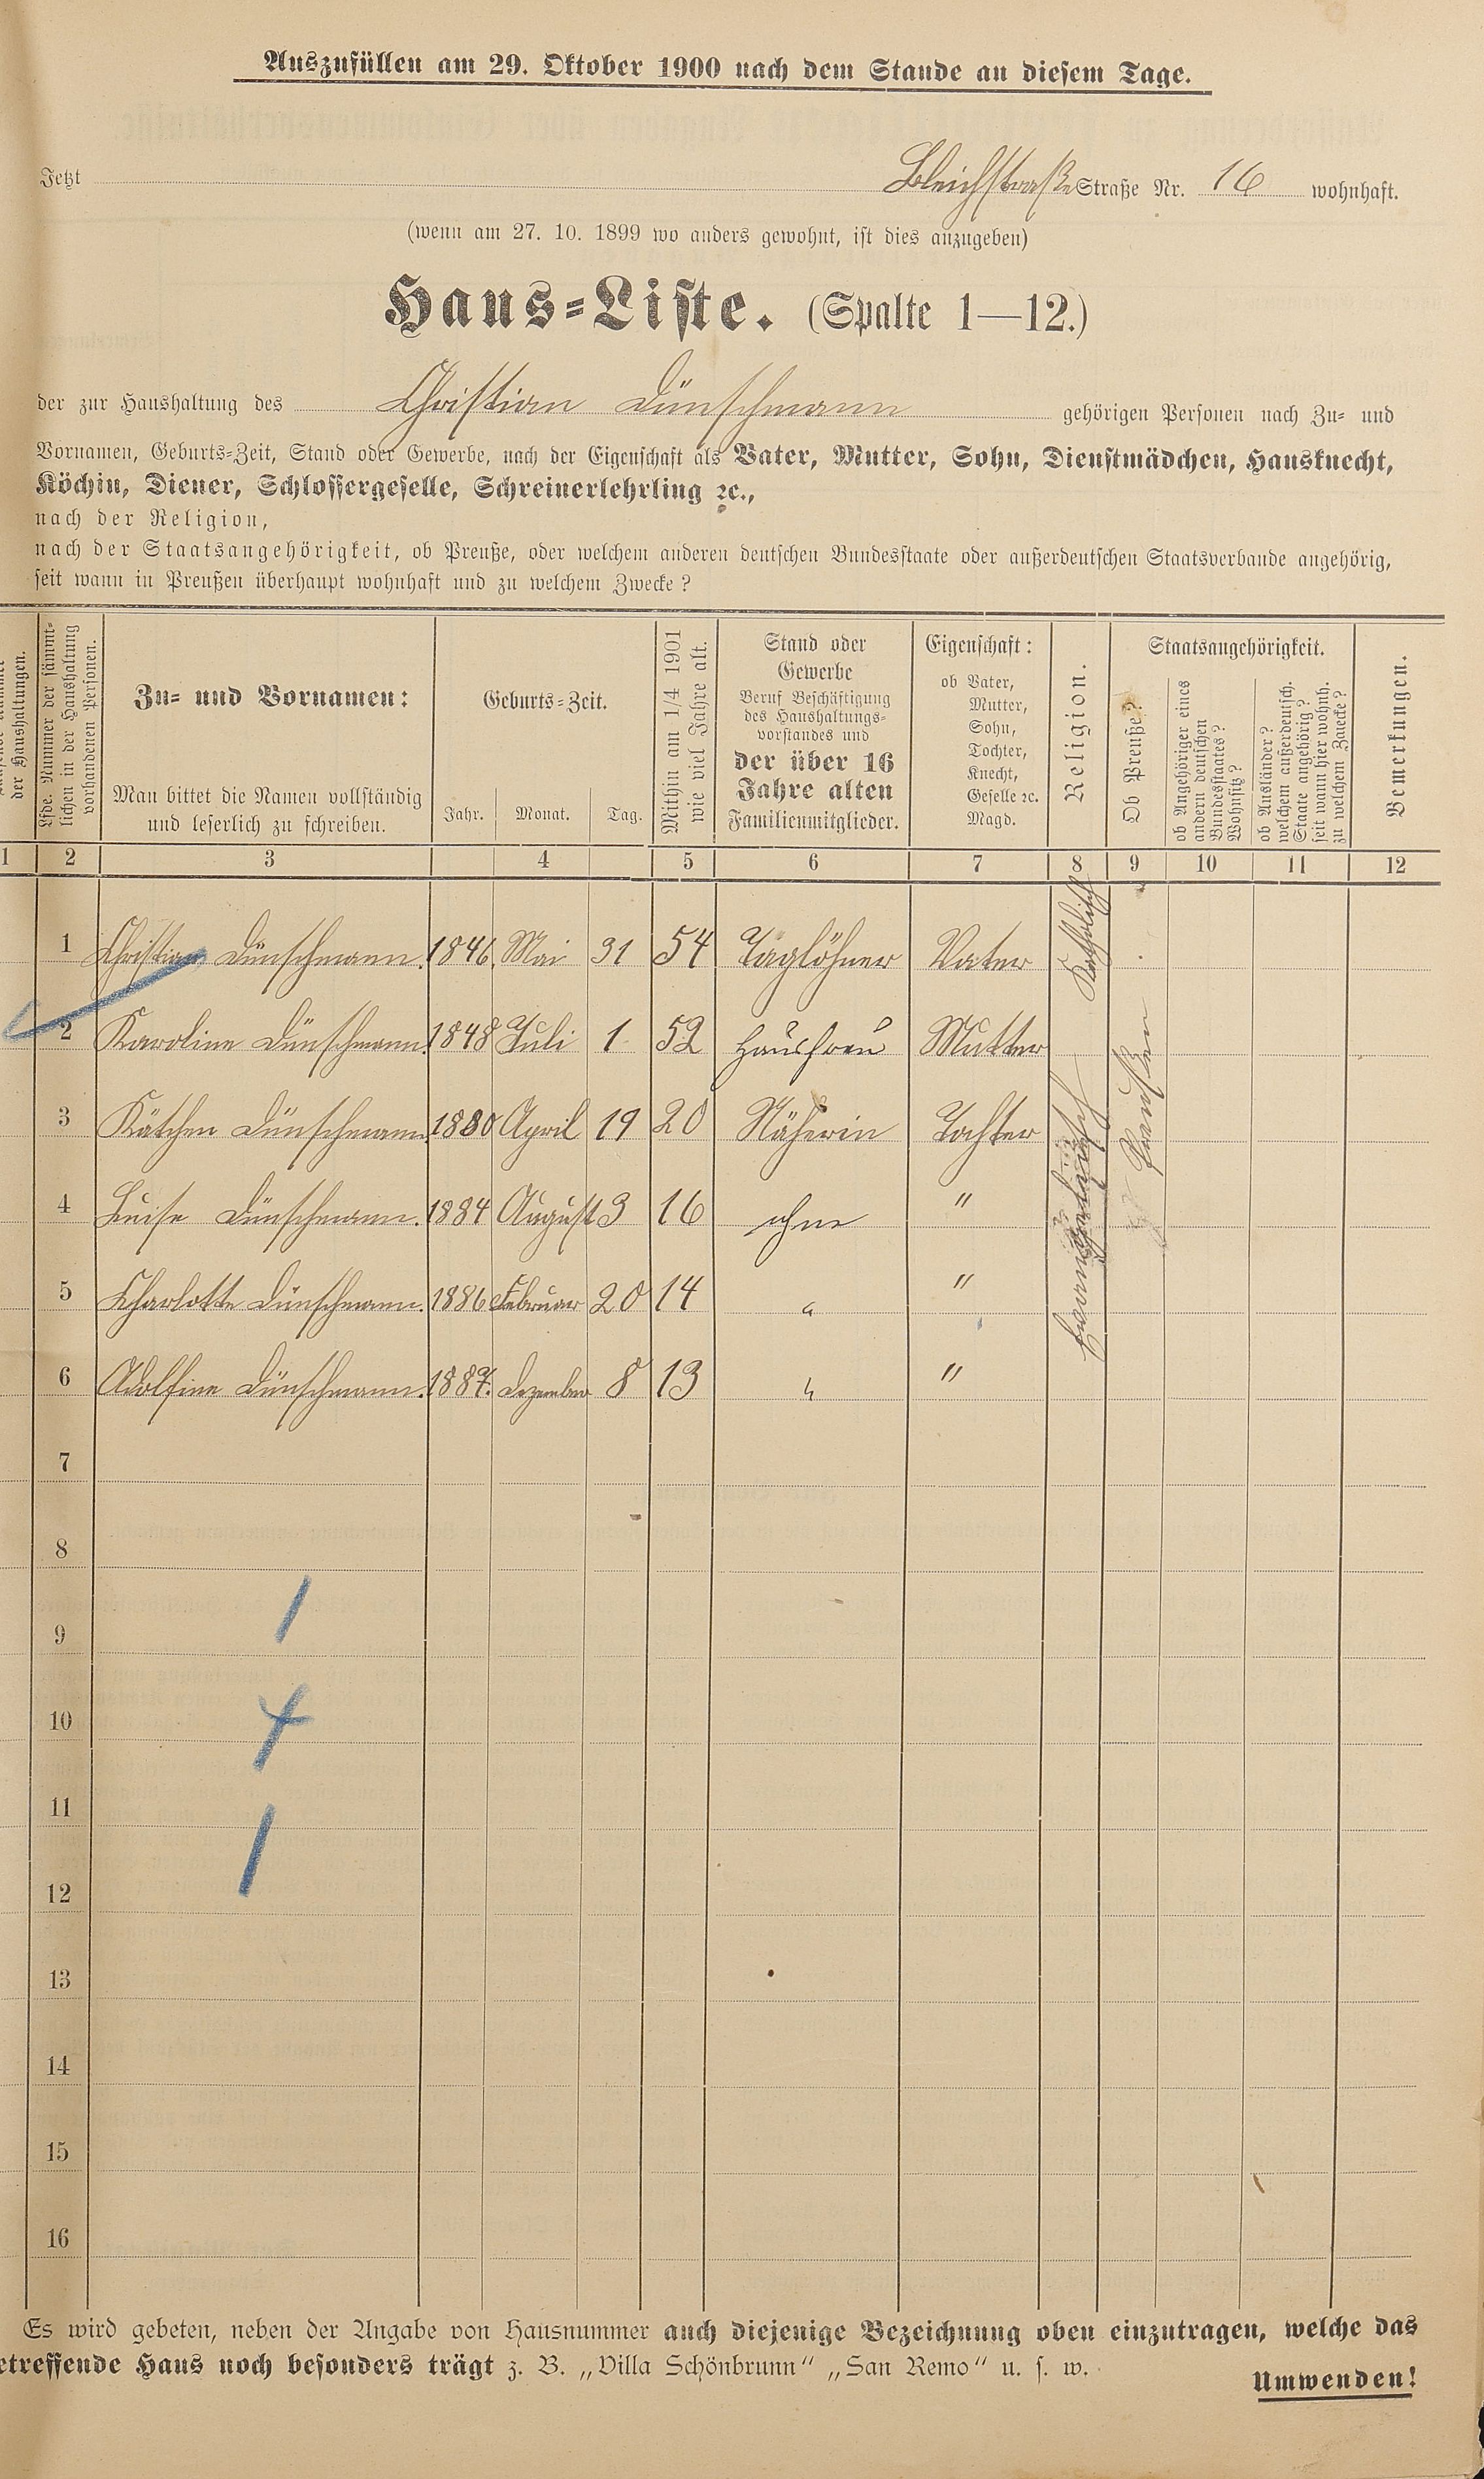 Auszufüllen am 29. Oktober 1900 nach dem Stande an diesem Tage.
Jetzt Bleichstraße Straße Nr. 16 wohnhaft.
(wenn am 27. 10. 1899 wo anders gewohnt, ist dies anzugeben)
Haus-Liste. (Spalte 1—12.)
der zur Haushaltung des Christian Dünschmann gehörigen Personen nach Zu- und
Vornamen, Geburts-Zeit, Stand oder Gewerbe, nach der Eigenschaft als Vater, Mutter, Sohn, Dienstmädchen, Hausknecht,
Köchin, Diener, Schlossergeselle, Schreinerlehrling ꝛc.,
nach der Religion,
nach der Staatsangehörigkeit, ob Preuße, oder welchem anderen deutschen Bundesstaate oder außerdeutschen Staatsverbande angehörig,
seit wann in Preußen überhaupt wohnhaft und zu welchem Zwecke?
der Haushaltungen.
Lfde. Nummer der sämmt-
lichen in der Haushaltung
vorhandenen Personen.
Zu- und Vornamen:
Man bittet die Namen vollständig
und leserlich zu schreiben.
Geburts-Zeit.
Jahr. Monat. Tag.
Mithin am 1/4 1901
wie viel Jahre alt.
Stand oder
Gewerbe
Beruf Beschäftigung
des Haushaltungs-
vorstandes und
der über 16
Jahre alten
Familienmitglieder.
Eigenschaft:
ob Vater,
Mutter,
Sohn,
Tochter,
Knecht,
Geselle ꝛc.
Magd.
Religion.
Staatsangehörigkeit.
Ob Preuße?
ob Angehöriger eines
andern deutschen
Bundesstaates?
Wohnsitz?
ob Ausländer?
welchem außerdeutsch.
Staate angehörig?
seit wann hier wohnh.
zu welchem Zwecke?
Bemerkungen.
1 2 3 4 5 6 7 8 9 10 11 12
1 Christian Dünschmann. 1846. Mai 31 54 Taglöhner Vater Katholisch
2 Karoline Dünschmann. 1848 Juli 1 52 Hausfrau Mutter
3 Kätchen Dünschmann. 1880 April 19 20 Näherin Tochter evangelisch Preußen
4 Luise Dünschmann. 1884 August 3 16 ohne "
5 Charlotte Dünschmann. 1886 Februar 20 14 " "
6 Adolfine Dünschmann. 1887. Dezember 8 13 " "
7
8
9
10
11
12
13
14
15
16
1
4
1
Es wird gebeten, neben der Angabe von Hausnummer auch diejenige Bezeichnung oben einzutragen, welche das
etreffende Haus noch besonders trägt z. B. „Villa Schönbrunn" „San Remo" u. s. w.
Umwenden!